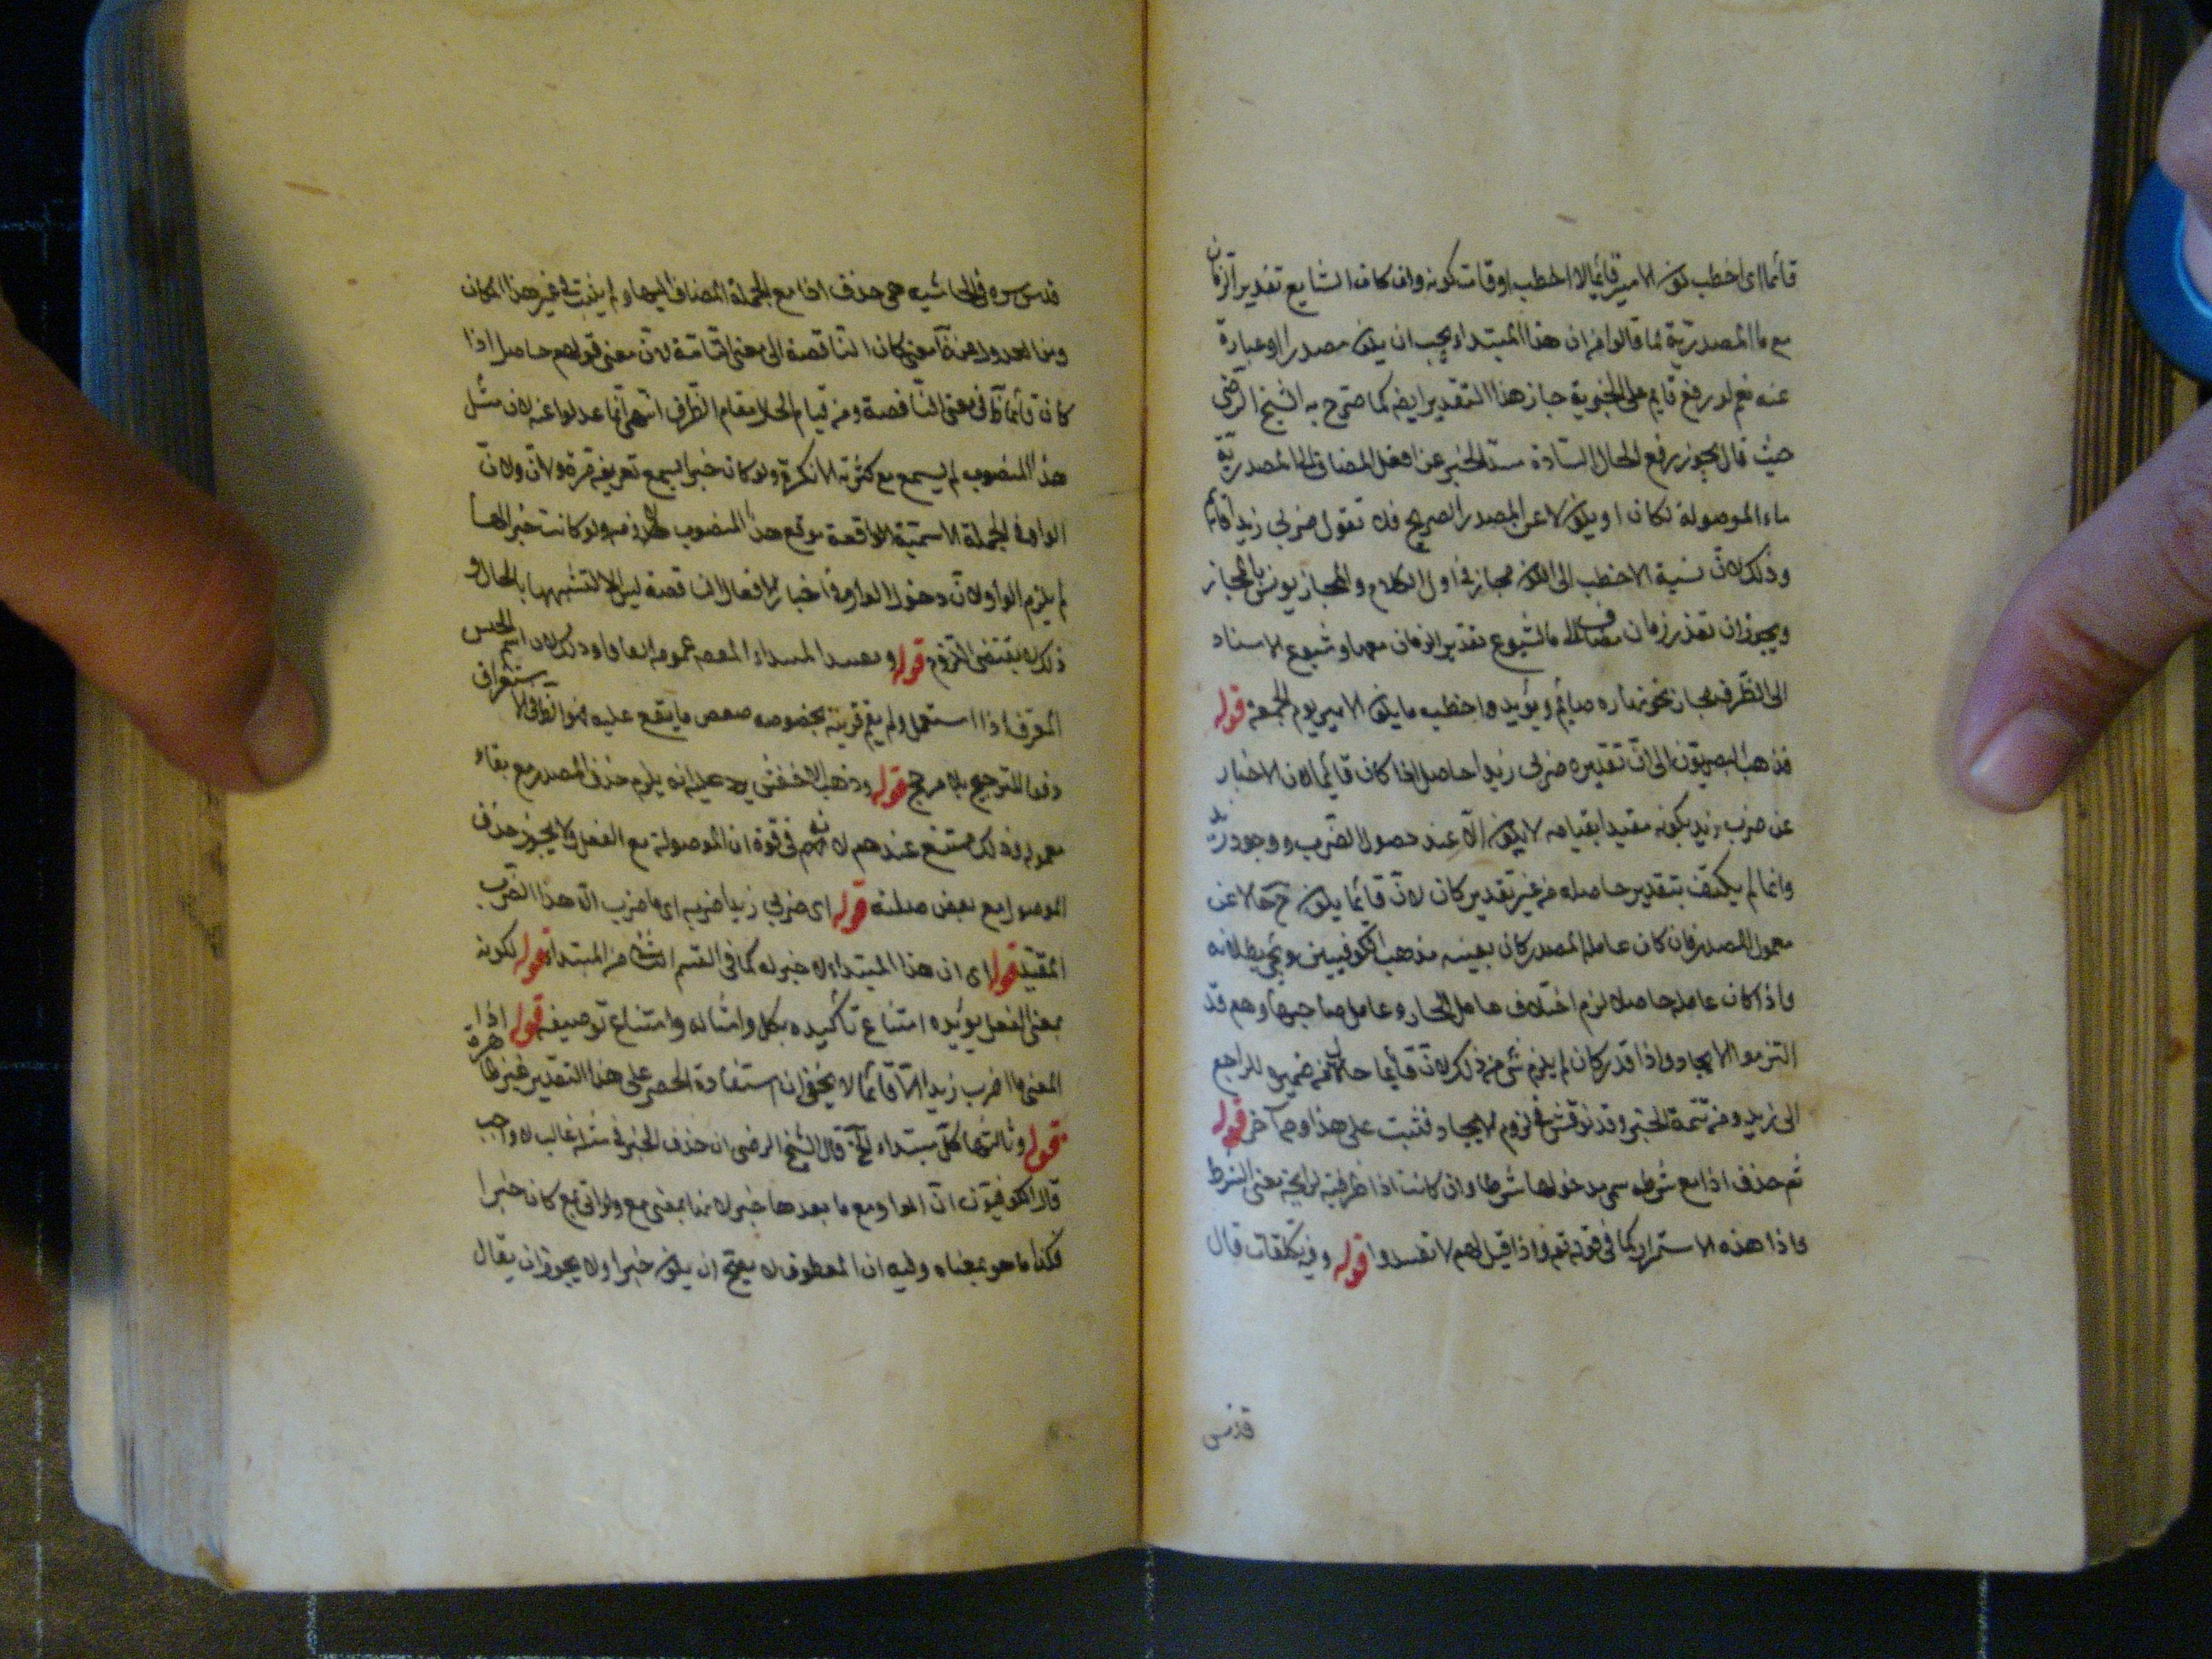 قائما اى اخطب كون الامير قائما لا اخطب اوقات كونه وان كان الشايع تقدير الزمان
مع ما المصدرية لما قالوا من ان هذا المبتداء يجب ان يكون مصدرا او عبارة
عنه نعم لو رفع قايم على الخبرية جاز هذا التقدير ايضا كما صرح به الشيخ الرضى
حيث قال يجوز رفع الحال السادة مسد الخبر عن افعل المضاف الى ما المصدرية
ماء الموصولة بكان او يكون لا عن المصدر الصريح فلا تقول ضربى زيدا قائم
وذلك لان نسبة الاخطب الى الكون مجاز فى اول الكلام والمجاز يونس بالمجاز
ويجوز ان تقدر زمان مضاف الى ما لشيوع تقدير الزمان معها وشيوع الاسناد
الى الظرف مجازا نحو نهاره صايم ويؤيده اخطب ما يكون الامير يوم الجمعة قوله
فذهب البصريون الى ان تقديره ضربى زيدا حاصل اذا كان قائما لان الاخبار
عن ضرب زيد بكونه مقيدا بقيامه لا يكون الا عند حصول الضرب ووجود زيد
وانما لم يكتف بتقدير حاصله من غير تقدير كان لان قائما يكون ح حالا عن
معمول المصدر فان كان عامله المصدر كان بعينه مذهب الكوفيين ويجئ بطلانه
واذا كان عامله حاصلا لزم اختلاف عامل الحال وعامل صاحبها وهم قد
التزموا الاتحاد واذا قدر كان لم يلزم شئ من ذلك لان قائما حال من ضميره الراجع
الى زيد ومن تتمة الخبر وقد نوقش فى لزوم الاتحاد فثبت على هذا وجه آخر قوله
ثم حذف اذا مع شرطه سمى مدخولها شرطا وان كانت اذا ظرفية لرايحة معنى الشرط
واذا هذه الاستمرار كما فى قوله تعم واذا قيل لهم لا تفسدوا قوله وفيه تكلفات قال
قدس
قدس سره فى الحاشيه هى حذف اذا مع الجملة المضاف اليها ولم يثبت فى غير هذا المكان
ومن العدول عن معنى كان الناقصة الى معنى التامة لان معنى قولهم حاصل اذا
كان قائما ظ فى معنى الناقصة ومن قيام الحال مقام الظرف انتهى انما عدلوا عنه لان مثل
هذا المنصوب لم يسمع مع كثرته الا نكرة ولو كان خبرا لسمع تعريفه مرة ولان
الواو فى الجملة الاسمية الواقعة موقع هذا المنصوب ولو كانت خبرا لها
لم يلزم الواو لان دخول الواو فى اخبار الافعال الناقصة ليس الا لتشبهها بالحال و
ذلك لا يقتضى اللزوم قوله ويفيد المبتداء العموم وذلك لان اسم الجنس
المعرف اذا استعمل ولم يقم قرينة بخصوصه ببعض ما يقع عليه فهو الاستغراق
دفعا للترجيح بلا مرجح قوله وذهب الاخفش يرد عليه انه يلزم حذف المصدر مع بقاء
معموله وذلك ممتنع عندهم لانه فى قوة ان الموصولة مع الفعل ولا يجوز حذف
الموصول مع بعض صلته قوله اى ضربى زيدا ضربه اى ما ضرب الا هذا الضرب
المقيد قوله اى ان هذا المبتداء لا خبر له كما فى القسم الثانى من المبتداء قوله لكونه
بمعنى الفعل يؤيده امتناع تأكيده بكل وامثاله وامتناع توصيفه قوله اذا
المعنى ما اضرب زيدا الا قائما لا يخفى ان استفادة الحصر على هذا التقدير غير ظاهرة
قوله وثالثها كل مبتداء الخ قال الشيخ الرضى ان حذف الخبر فى مثله غالب لا واجب
قال الكوفيون ان الواو مع ما بعدها خبر لانها بمعنى مع ولو اتى بمع كان خبرا
فكذا ما هو بمعناه وفيه ان المعطوف لا يصح ان يكون خبرا ولا يجوز ان يقال